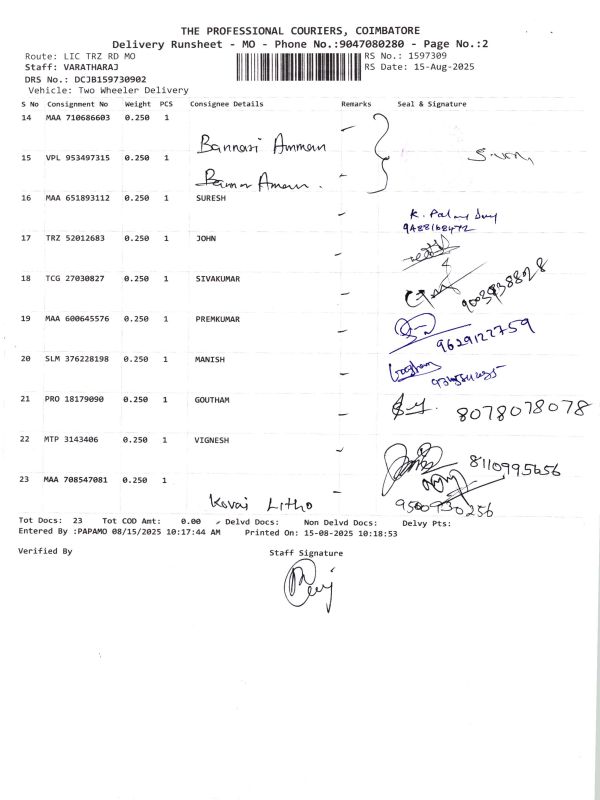 THE PROFESSIONAL COURIERS, COIMBATORE
Delivery Runsheet - MO - Phone No.:9047080280 - Page No.:2
Route: LIC TRZ RD MO RS No.: 1597309
Staff: VARATHARAJ RS Date: 15-Aug-2025
DRS No.: DCJB159730902
Vehicle: Two Wheeler Delivery
S No Consignment No Weight PCS Consignee Details Remarks Seal & Signature
14 MAA 710686603 0.250 1
Bannari Amman
15 VPL 953497315 0.250 1
16 MAA 651893112 0.250 1 SURESH
9488168472
17 TRZ 52012683 0.250 1 JOHN
18 TCG 27030827 0.250 1 SIVAKUMAR
9003938828
19 MAA 600645576 0.250 1 PREMKUMAR
9629122759
20 SLM 376228198 0.250 1 MANISH
21 PRO 18179090 0.250 1 GOUTHAM
8078078078
22 MTP 3143406 0.250 1 VIGNESH
8110995656
23 MAA 708547081 0.250 1
Kovai Litho 9500930256
Tot Docs: 23 Tot COD Amt: 0.00 Delvd Docs: Non Delvd Docs: Delvy Pts:
Entered By :PAPAMO 08/15/2025 10:17:44 AM Printed On: 15-08-2025 10:18:53
Verified By Staff Signature